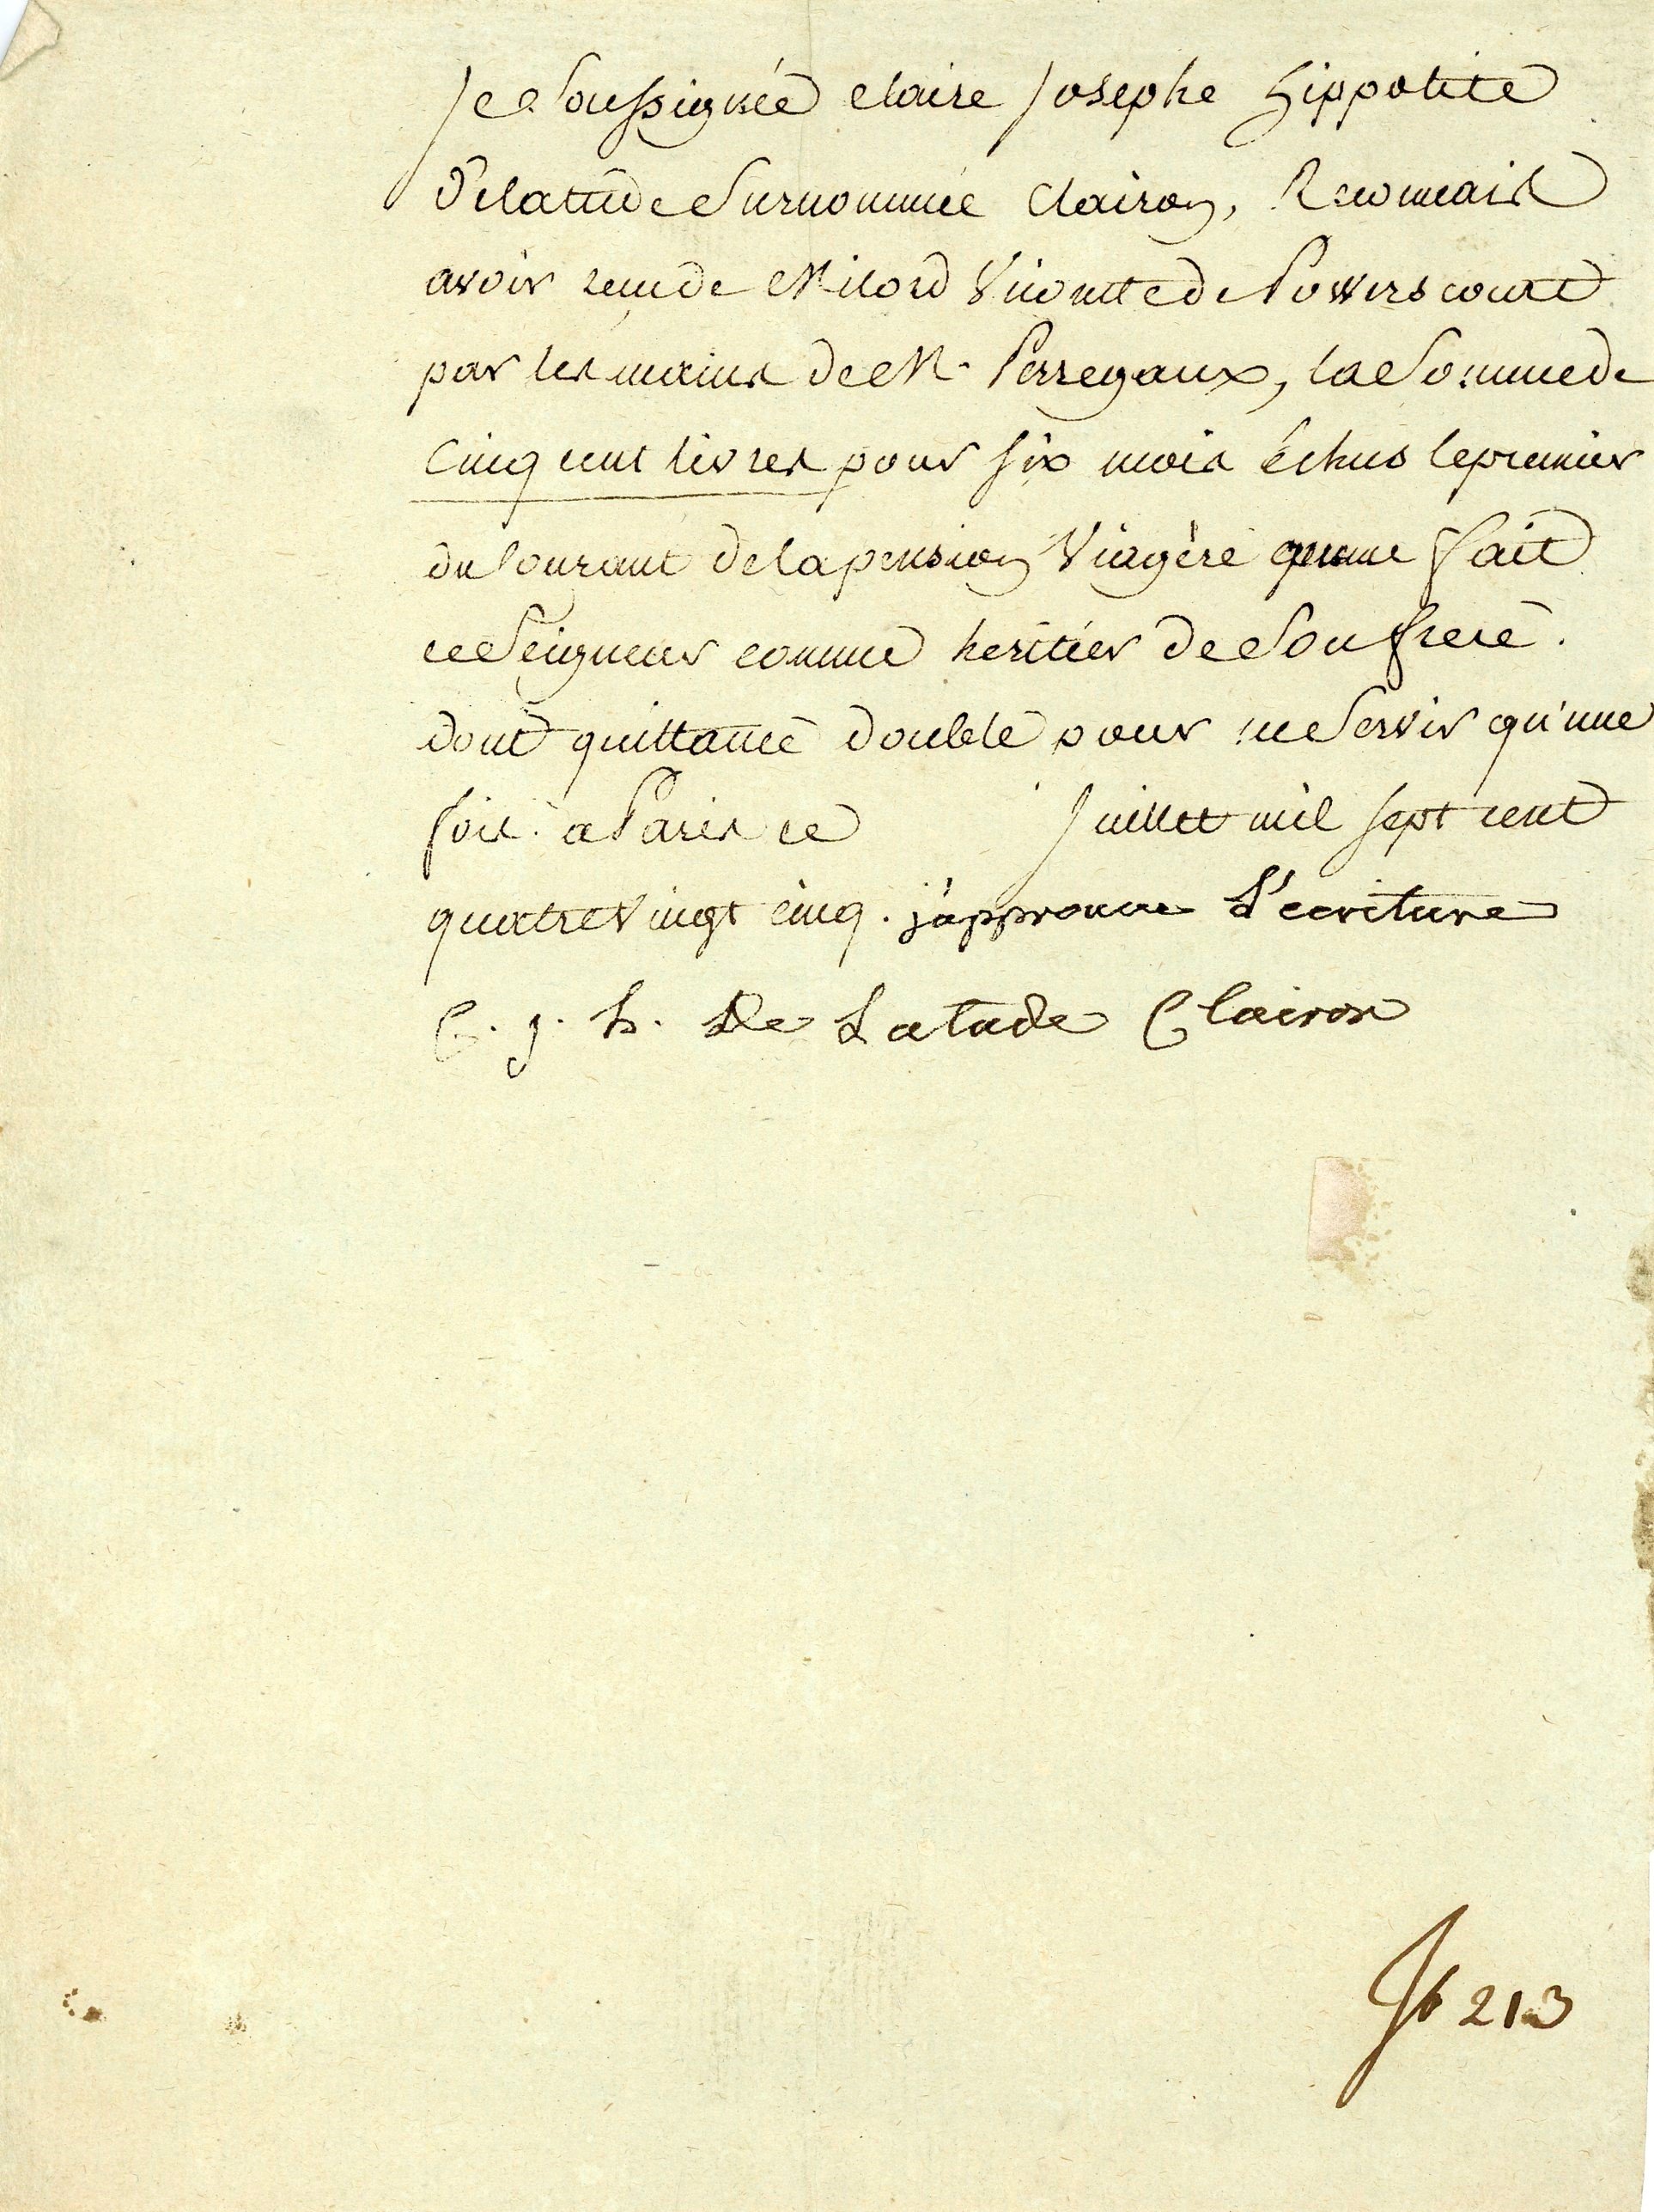 Je Soussignée Claire Josephe hippolite
Delattude Surnommée Clairon, Reconnais
avoir reçu de Milord Vicomte de Powerscourt
par les mains de M. Perregaux, la Somme de
Cinq cent livres pour six mois échus le premier
du Courant de la pension Viagère que me fait
ce Seigneur comme heritier de Son frere.
dont quittance double pour ne Servir qu'une
fois. a Paris ce Juillet mil sept cent
quatre Vingt cinq. j'approuve L'ecriture
C. j. h. De Latude Clairon
213